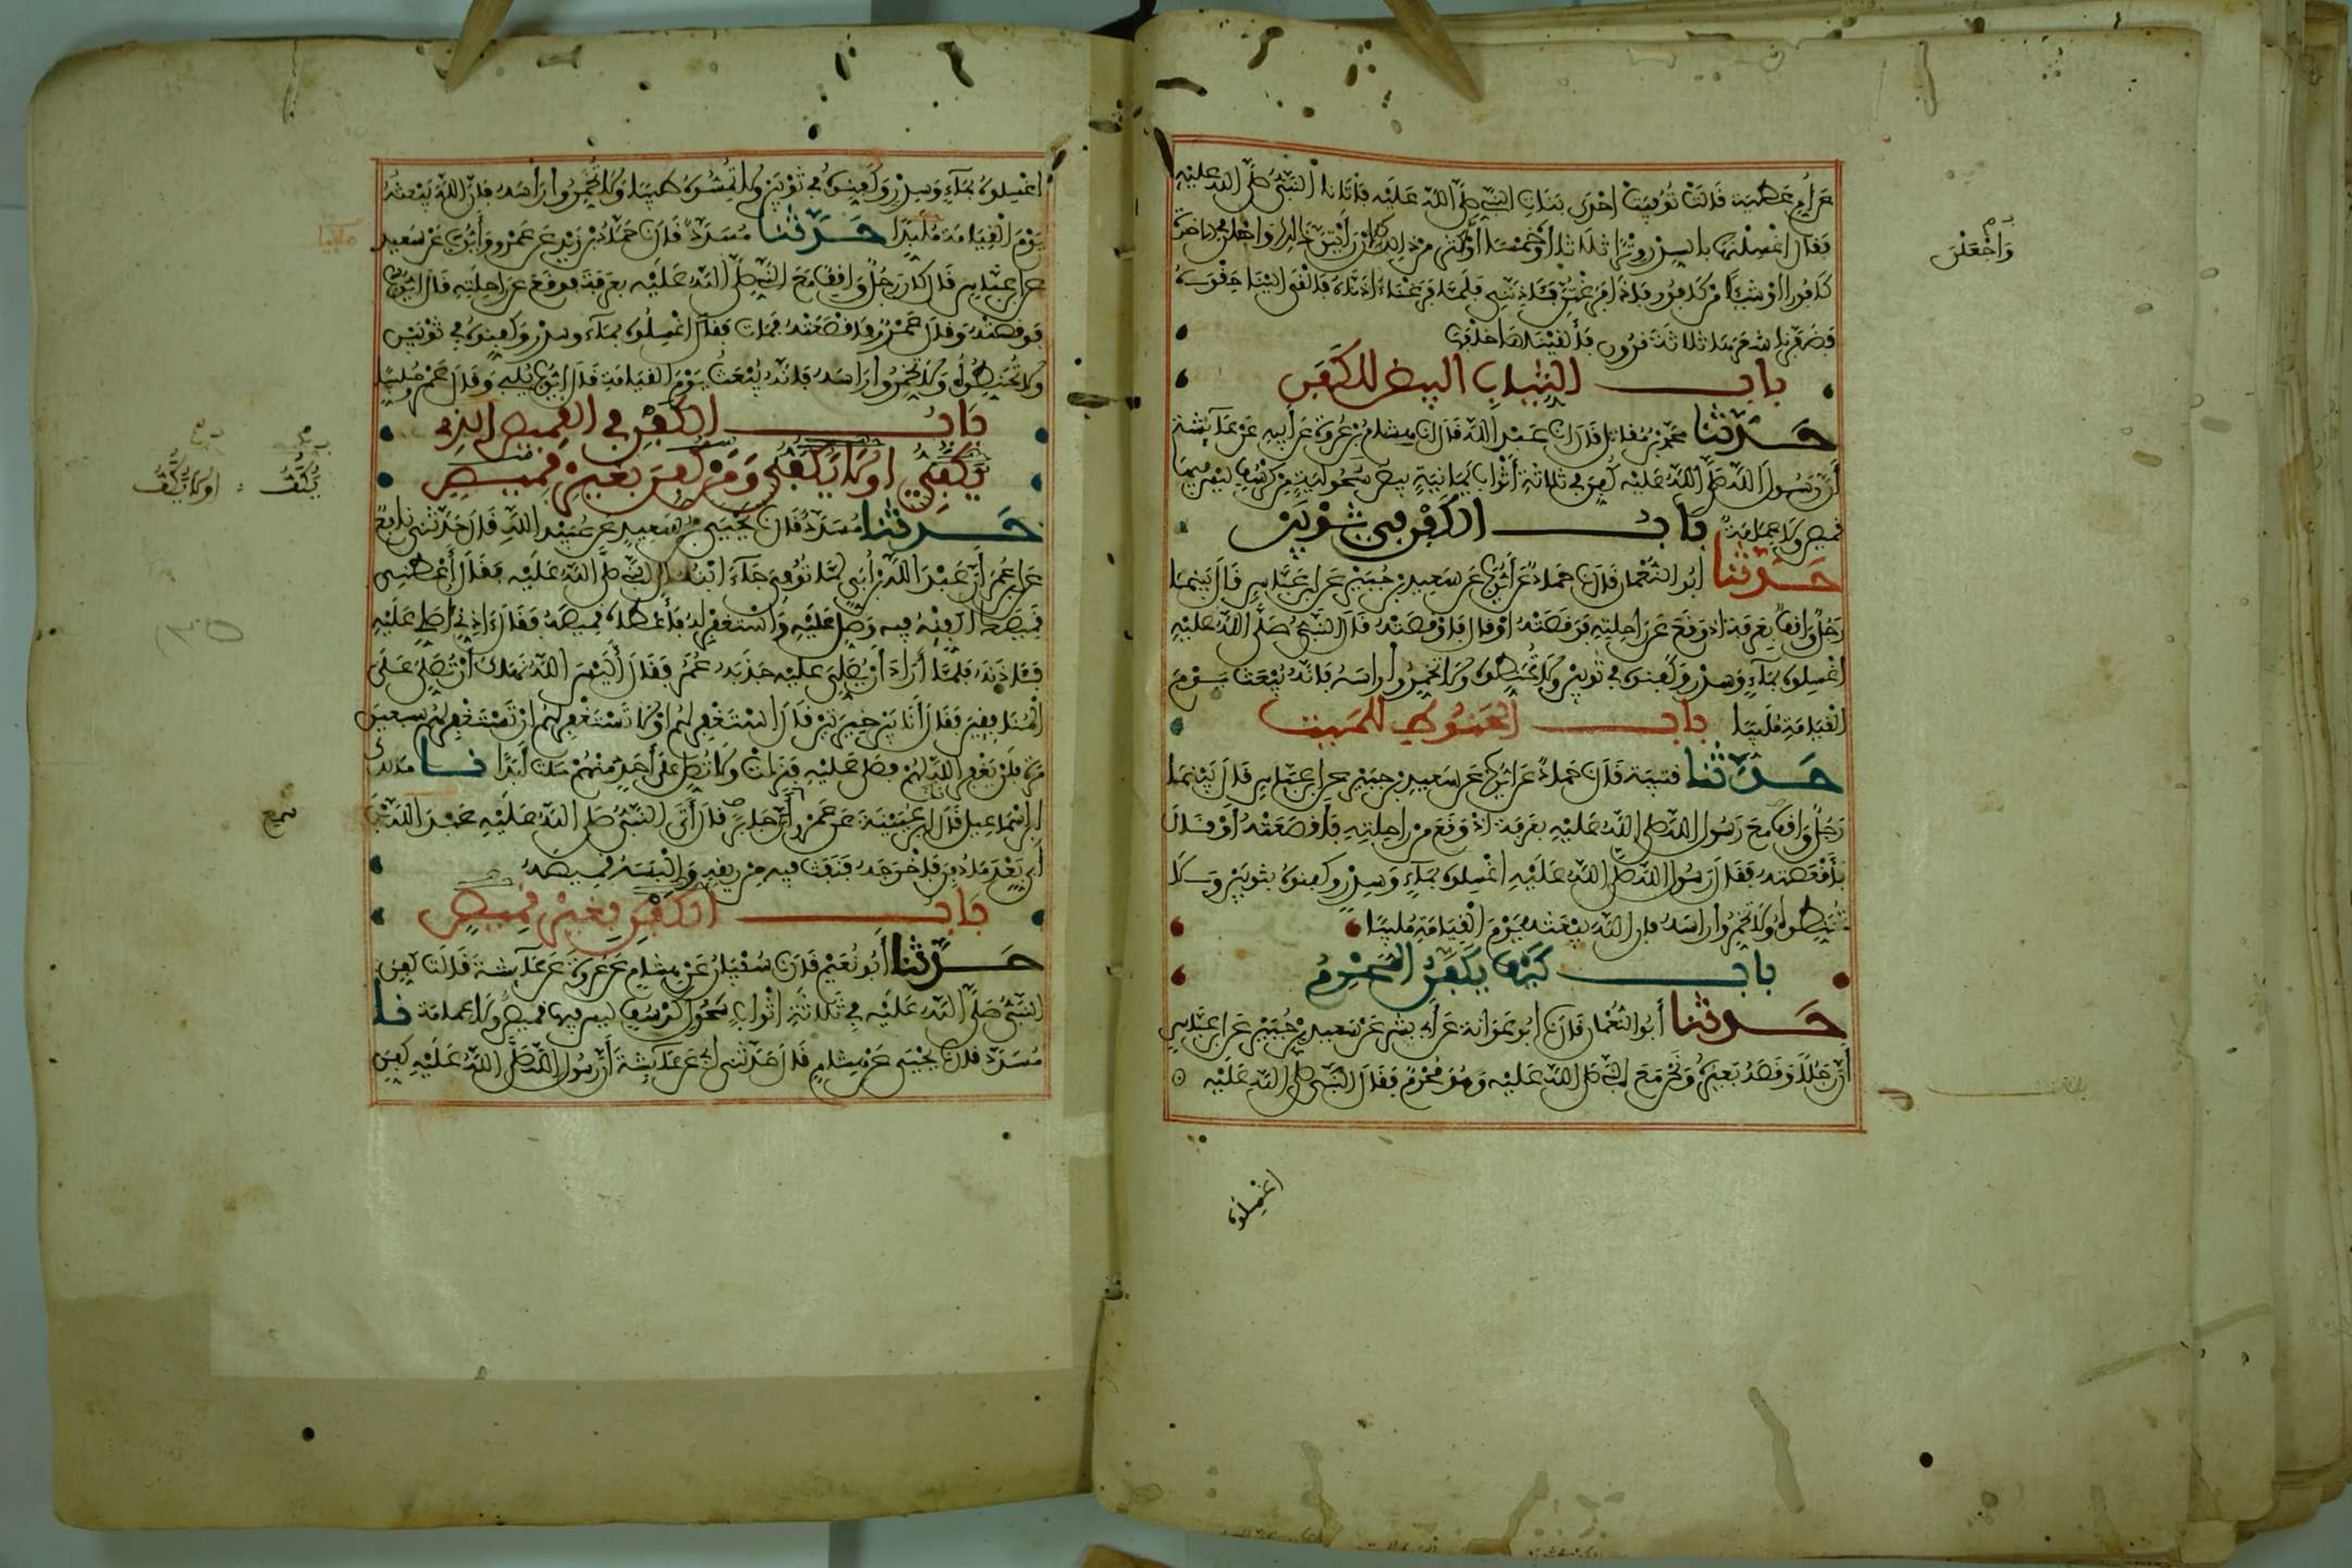 عن أم عطية قالت توفيت إحدى بنات النبي صلى الله عليه فأتانا النبي صلى الله عليه
فقال اغسلنها بالسدر وترا ثلاثا أو خمسا أو أكثر من ذلك إن رأيتن ذلك واجعلن في الآخرة
كافورا أو شيئا من كافور فإذا فرغتن فآذنني فلما فرغنا آذناه فألقى إلينا حقوه
فضفرنا شعرها ثلاثة قرون فألقيناها خلفها
باب الثياب البيض للكفن
حدثنا محمد بن مقاتل قال نا عبد الله قال نا هشام بن عروة عن أبيه عن عائشة
أن رسول الله صلى الله عليه كفن في ثلاثة أثواب يمانية بيض سحولية من كرسف ليس فيها
قميص ولا عمامة باب الكفن في ثوبين
حدثنا أبو النعمان قال نا حماد عن أيوب عن سعيد بن جبير عن ابن عباس قال بينما
رجل واقف بعرفة إذ وقع عن راحلته فوقصته أو قال فأوقصته قال النبي صلى الله عليه
اغسلوه بماء وسدر وكفنوه في ثوبين ولا تحنطوه ولا تخمروا رأسه فإنه يبعث يوم
القيامة ملبيا باب الحنوط للميت
حدثنا قتيبة قال نا حماد عن أيوب عن سعيد بن جبير عن ابن عباس قال بينما
رجل واقف مع رسول الله صلى الله عليه بعرفة إذ وقع من راحلته فأقصعته أو قال
فأقعصته فقال رسول الله صلى الله عليه اغسلوه بماء وسدر وكفنوه بثوبين ولا
تحنطوه ولا تخمروا رأسه فإن الله يبعثه يوم القيامة ملبيا
باب كيف يكفن المحرم
حدثنا أبو النعمان قال نا أبو عوانة عن أبي بشر عن سعيد بن جبير عن ابن عباس
أن رجلا وقصه بعيره ونحن مع النبي صلى الله عليه وهو محرم فقال النبي صلى الله عليه
اغسلوه
واجعلن
اغسلوه بماء وسدر وكفنوه في ثوبين ولا تمسوه طيبا ولا تخمروا رأسه فإن الله يبعثه
يوم القيامة ملبدا حدثنا مسدد قال نا حماد بن زيد عن عمرو وأيوب عن سعيد
عن ابن عباس قال كان رجل واقف مع النبي صلى الله عليه بعرفة فوقع عن راحلته قال أيوب
فوقصته وقال عمرو فأقصعته فمات فقال اغسلوه بماء وسدر وكفنوه في ثوبين
ولا تحنطوه ولا تخمروا رأسه فإنه يبعث يوم القيامة قال أيوب يلبي وقال عمرو ملبيا
باب الكفن في القميص الذي
يكفي أو لا يكفي ومن كفن بغير قميص
حدثنا مسدد قال نا يحيى بن سعيد عن عبيد الله قال حدثني نافع
عن ابن عمر أن عبد الله بن أبي لما توفي جاء ابنه إلى النبي صلى الله عليه فقال أعطني
قميصك أكفنه فيه وصل عليه واستغفر له فأعطاه قميصه فقال آذني أصلي عليه
فآذنه فلما أراد أن يصلي عليه جذبه عمر فقال أليس الله نهاك أن تصلي على
المنافقين فقال أنا بين خيرتين قال استغفر لهم أو لا تستغفر لهم إن تستغفر لهم سبعين
مرة فلن يغفر الله لهم فصلى عليه فنزلت ولا تصل على أحد منهم مات أبدا نا مالك
ابن إسماعيل قال نا ابن عيينة عن عمرو سمع جابر قال أتى النبي صلى الله عليه عبد الله بن
أبي بعد ما دفن فأخرجه فنفث فيه من ريقه وألبسه قميصه
باب الكفن بغير قميص
حدثنا أبو نعيم قال نا سفيان عن هشام عن عروة عن عائشة قالت كفن
النبي صلى الله عليه في ثلاثة أثواب سحول كرسف ليس فيها قميص ولا عمامة نا
مسدد قال نا يحيى عن هشام قال حدثني أبي عن عائشة أن رسول الله صلى الله عليه كفن
ملبيا
يكف أو لا يكف
سمع